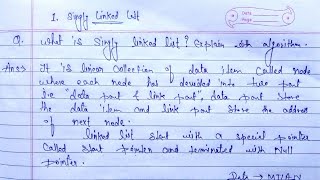 1. Singly Linked List
Q. What is Singly linked list? Explain with algorithm.
Ans→ It is linear collection of data item called node
where each node has devided into two part
i.e "data part & link part", data part store
the data item and link part store the address
of next node.
linked list start with a special pointer
called start pointer and terminated with Null
pointer.
Data